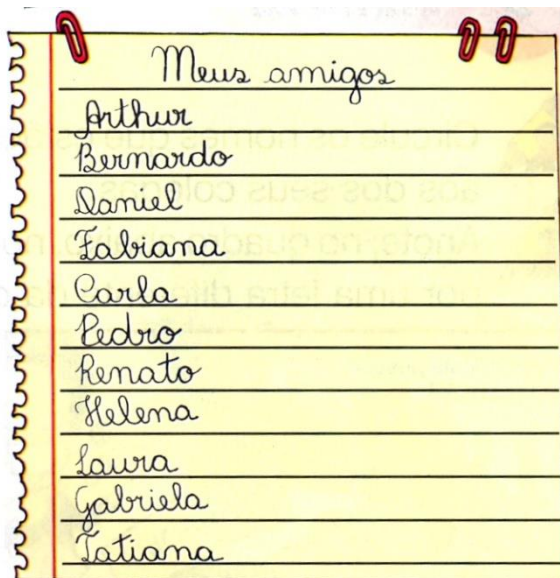 Meus amigos
Arthur
Bernardo
Daniel
Fabiana
Carla
Pedro
Renato
Helena
Laura
Gabriela
Tatiana